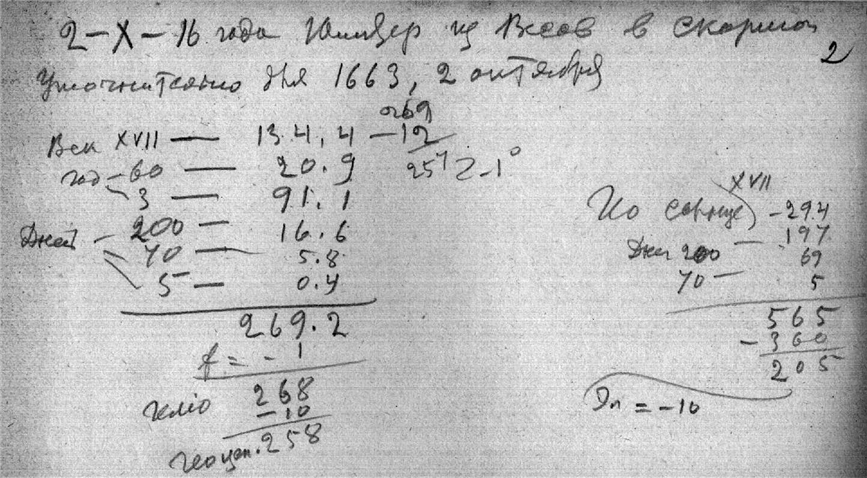 2-X-16 года Юпитер из Весов в Скорпион
2
Уточнительно для 1663, 2 октября
269
Век XVII — 134,4 — 12
год - 60 — 20.9 257 -1°
3 — 91.1
Дней - 200 — 16.6
70 — 5.8
5 — 0.4
269.2
f = - 1
гелио 268
- 10
геоцен. 258
XVII
По солнце - 294
197
Дней 200 — 69
70 — 5
565
- 360
205
= -10